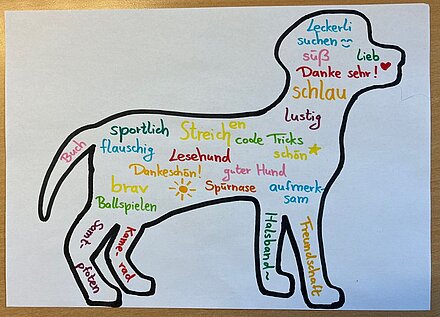 Leckerli
suchen
süß
Lieb
Danke sehr!
schlau
lustig
sportlich
Streichen
code Tricks
Buch
flauschig
Lesehund
schön
Dankeschön!
guter Hund
brav
Spürnase
aufmerk-
sam
Ballspielen
Samt-
pfoten
Kame-
rad
Halsband~
Freundschaft